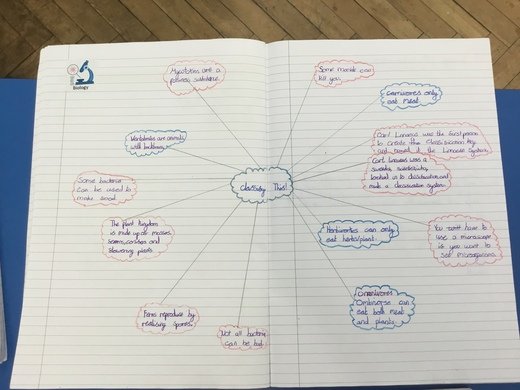 Biology
Mycotoxins are a
poisonous substance.
Vertebrates are animals
with backbones.
Some bacteria
can be used to
make food.
The plant kingdom
is made up of mosses,
ferns, conifers and
flowering plants
Ferns reproduce by
releasing spores.
Not all bacteria
can be bad.
Classifying This!
Some can
kill you.
Carnivores only
eat meat.
Carl Linnaeus was the first person
to create the classification key
and named it the Linnaean system.
Carl Linnaeus was a
Swedish
looked in to classification and
made a classification system.
Herbivores can only
eat herbs/plant.
You don't have to
use a microscope
if you want to
see
Omnivores can
eat both meat
and plants.